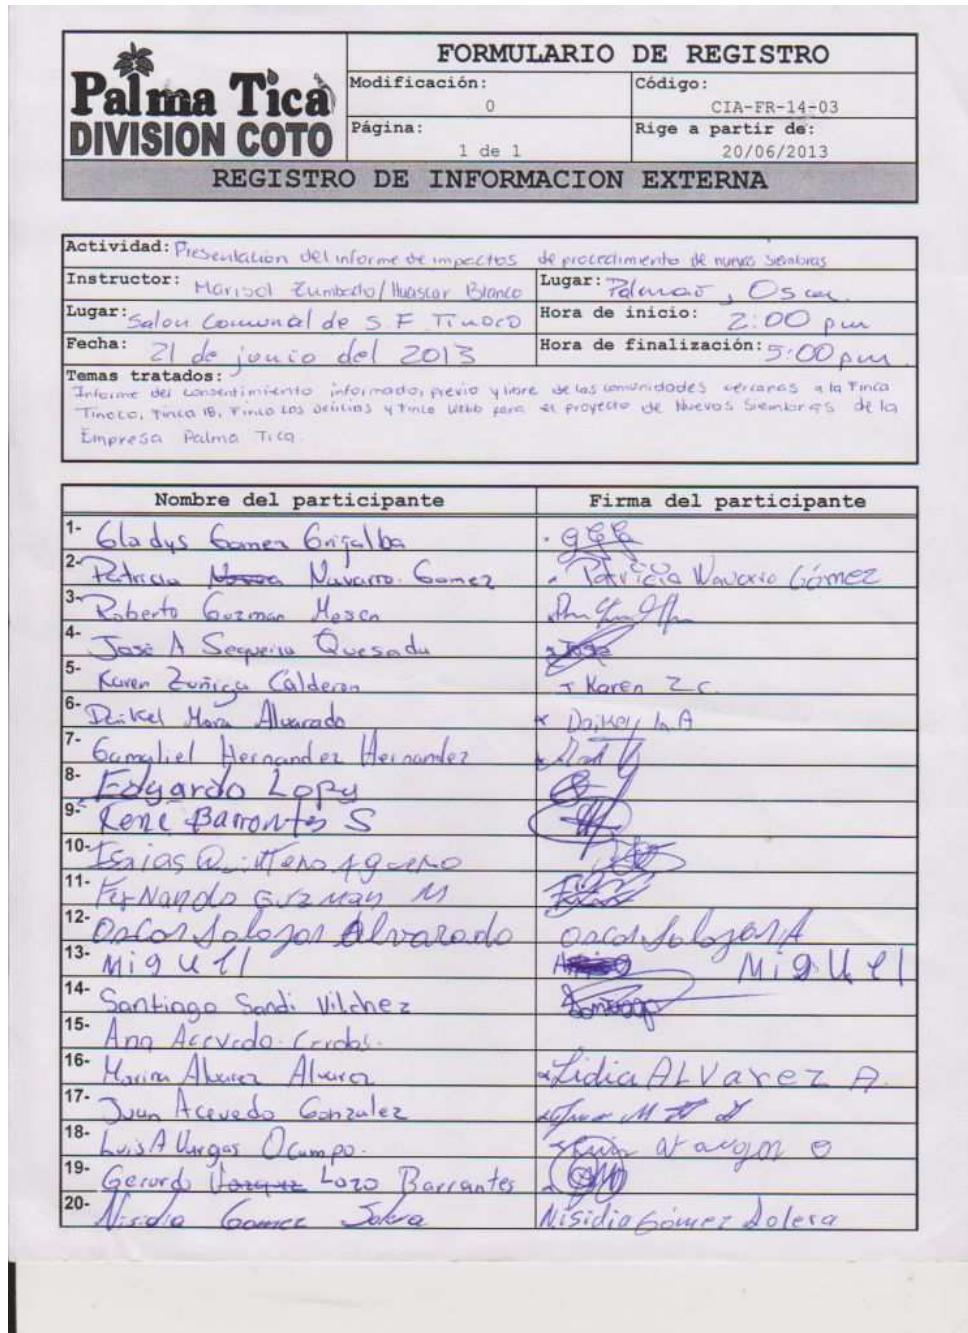 Palma Tica
DIVISION COTO
FORMULARIO DE REGISTRO
Modificación:
0
Código:
CIA-FR-14-03
Página:
1 de 1
Rige a partir de:
20/06/2013
REGISTRO DE INFORMACION EXTERNA
Actividad: Presentacion del informe de impactos de procedimiento de nuevas siembras
Instructor: Marisol Zumbado/Huascar Blanco
Lugar: Palmar, Osa
Lugar: Salon Comunal de S F Tinoco
Hora de inicio: 2:00 pm
Fecha: 21 de junio del 2013
Hora de finalización: 5:00 pm
Temas tratados:
Informe del consentimiento informado, previo y libre de las comunidades cercanas a la Finca
Tinoco, Finca 18, Finca Los Delicias y Finca Webb para el proyecto de Nuevas Siembras de la
Empresa Palma Tica.
Nombre del participante
Firma del participante
1- Gladys Gomez Grijalba
GGG
2- Patricia Navarro Gomez
Patricia Navarro Gómez
3- Roberto Guzman Mesen
4- José A Sequeira Quesada
Jose
5- Karen Zuñiga Calderon
Karen Z C.
6- Deikel Mora Alvarado
Deikel M A
7- Gamaliel Hernandez Hernandez
8- Edgardo Lopy
9- Rene Barrontes S
10- Isaias Quittero Aguero
11- FerNando Guzman M
12- Oscar Salazar Alvarado
Oscar Salazar A
13- Miguel
Miguel
14- Santiago Sandi Vilchez
Santiago
15- Ana Acevedo Cerdas.
16- Marina Alvarez Alvarez
Lidia ALVarez A.
17- Juan Acevedo Gonzalez
18- Luis A Vargas Ocampo.
19- Gerardo Lozo Barrantes
20- Nisidia Gomez Solera
Nisidia Gómez Solera